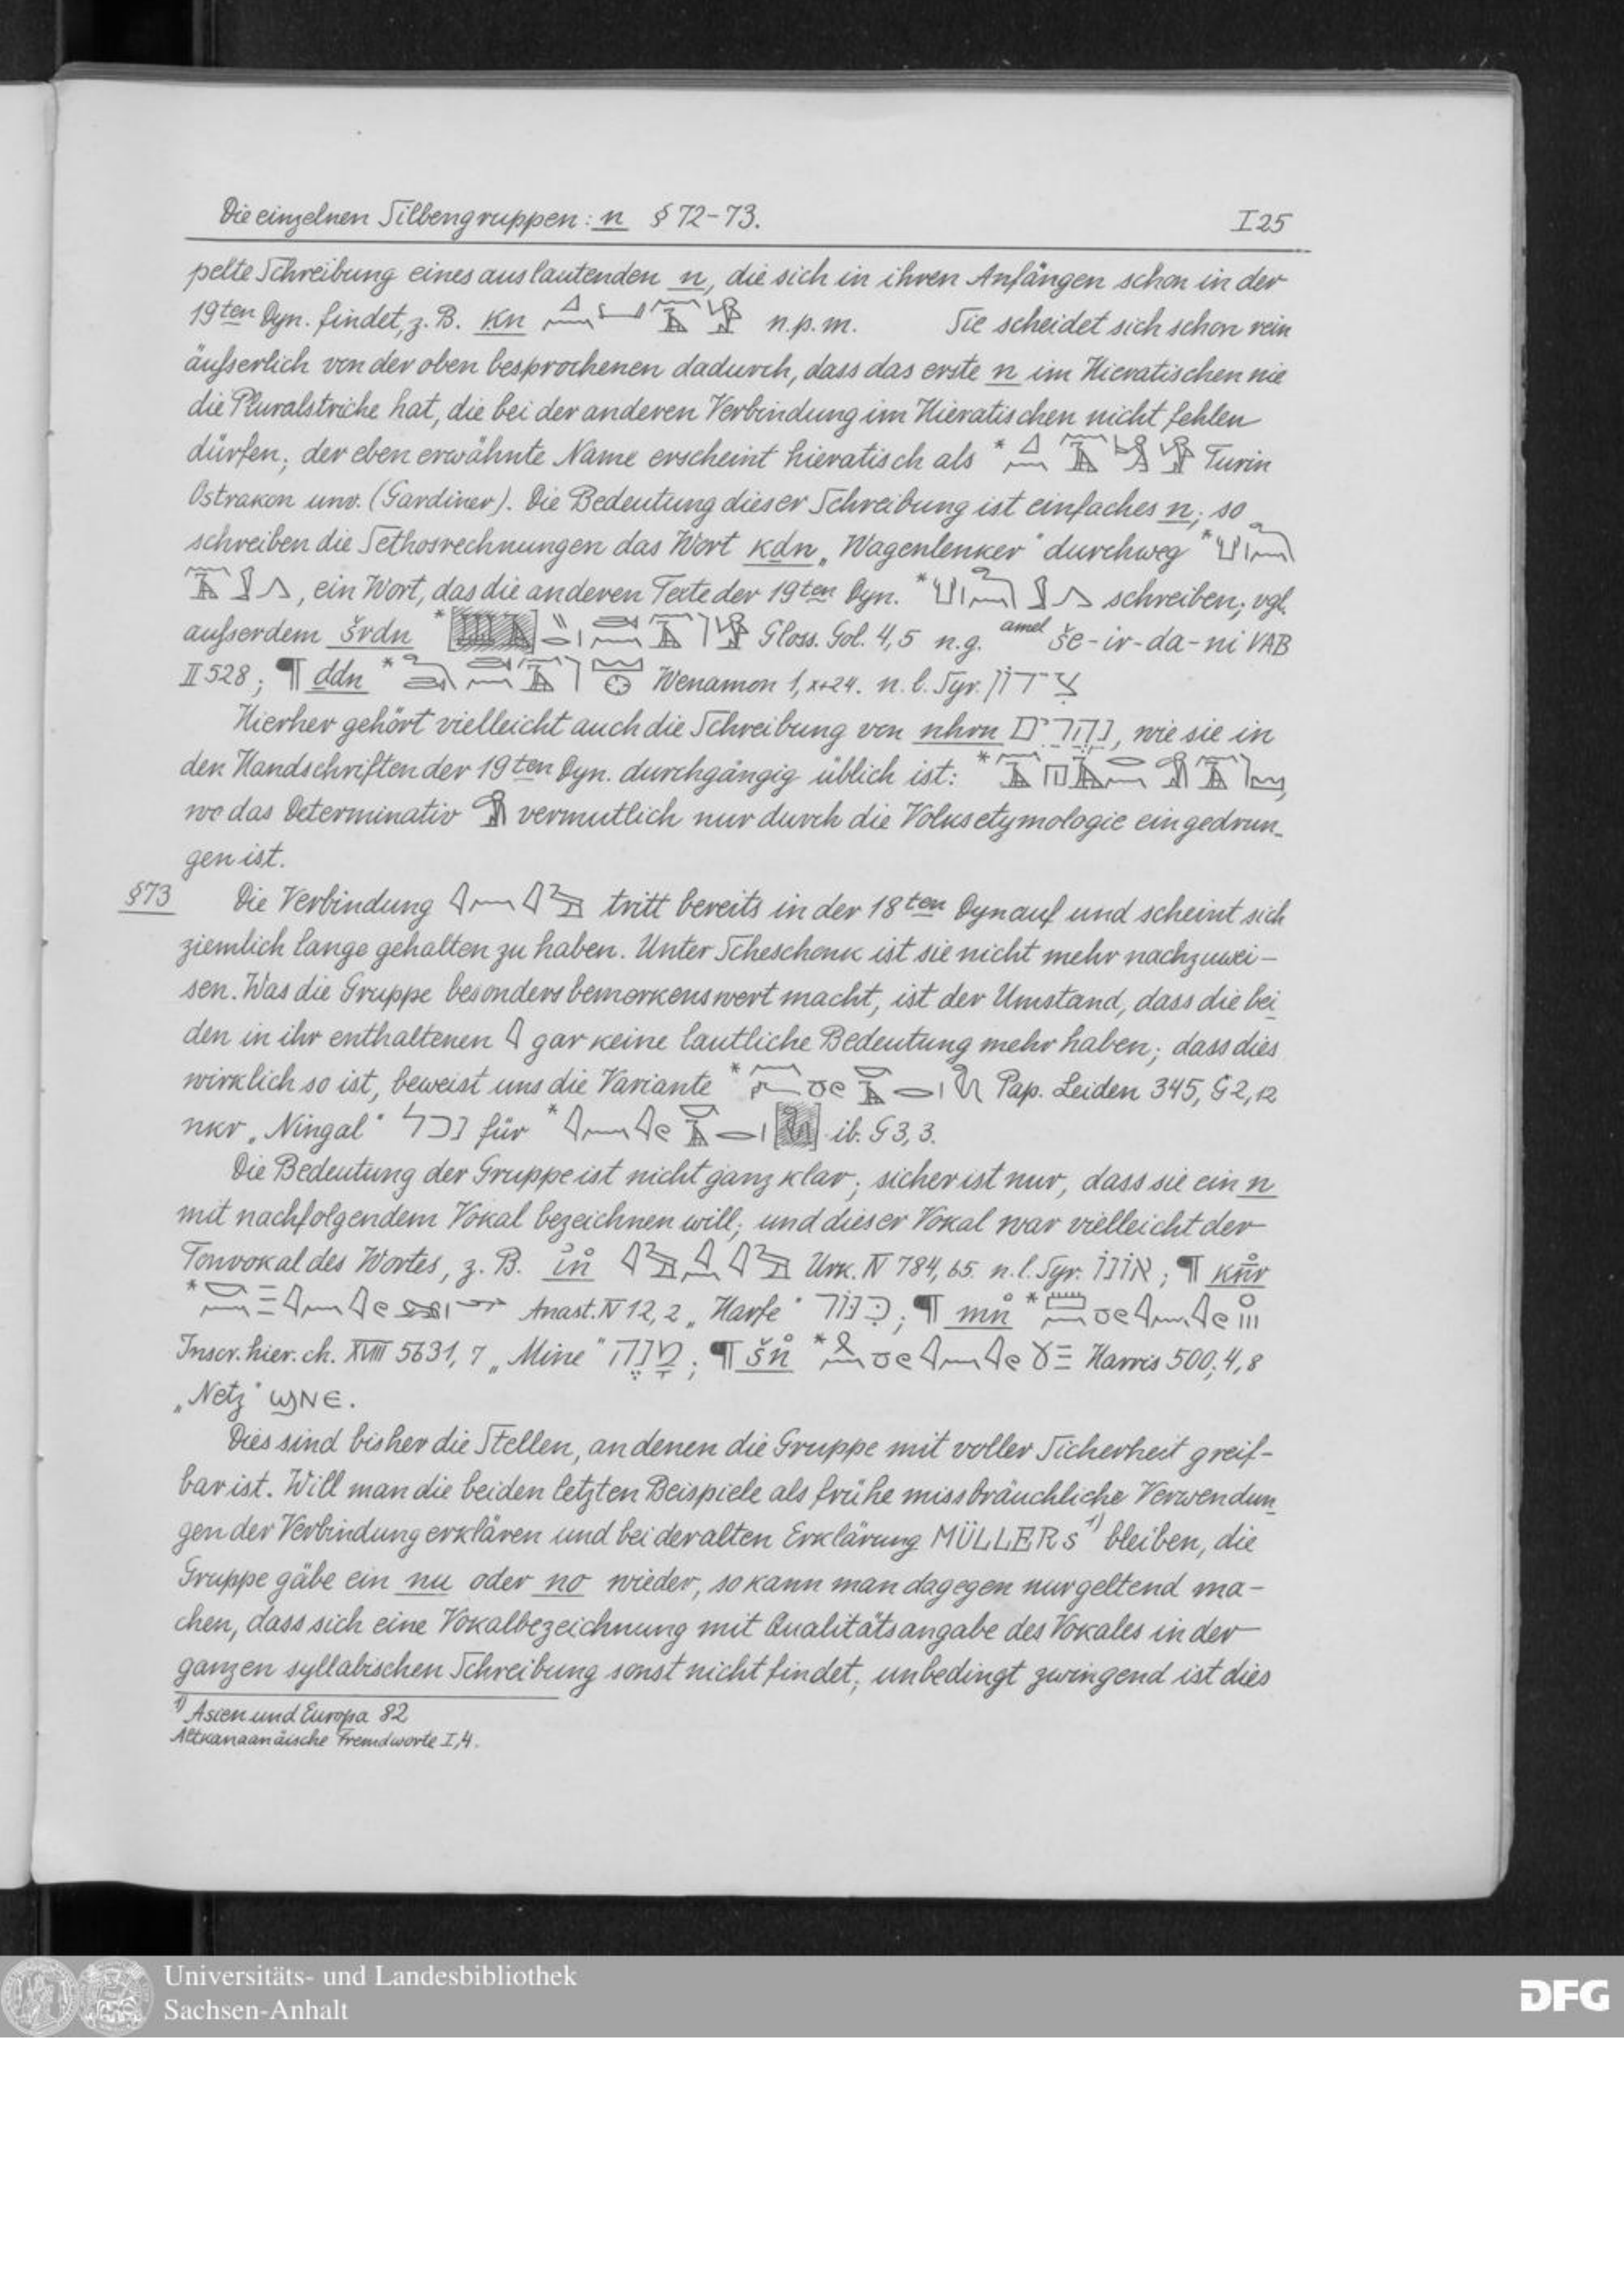 Die einzelnen Silbengruppen: n § 72-73. I 25
pelte Schreibung eines auslautenden n, die sich in ihren Anfängen schon in der
19ten Dyn. findet, z. B. kn n. p. m. Sie scheidet sich schon rein
äußserlich von der oben besprochenen dadurch, dass das erste n im Hieratischen nie
die Pluralstriche hat, die bei der anderen Verbindung im Hieratischen nicht fehlen
dürfen; der eben erwähnte Name erscheint hieratisch als * Turin
Ostrakon unv. (Gardiner). Die Bedeutung dieser Schreibung ist einfaches n; so
schreiben die Sethosrechnungen das Wort kdn „Wagenlenker" durchweg *
, ein Wort, das die anderen Texte der 19ten Dyn. * schreiben; vgl.
außserdem šrdn * Gloss. Gol. 4,5 n. g. amel še-ir-da-ni VAB
II 528; ¶ ddn * Wenamon 1, x+24. n. l. Syr.
Hierher gehört vielleicht auch die Schreibung von nhrn, wie sie in
den Handschriften der 19ten Dyn. durchgängig üblich ist: *
wo das Determinativ vermutlich nur durch die Volksetymologie eingedrun-
gen ist.
§73 Die Verbindung tritt bereits in der 18ten Dyn auf und scheint sich
ziemlich lange gehalten zu haben. Unter Scheschonk ist sie nicht mehr nachzuwei-
sen. Was die Gruppe besonders bemerkenswert macht, ist der Umstand, dass die bei
den in ihr enthaltenen gar keine lautliche Bedeutung mehr haben; dass dies
wirklich so ist, beweist uns die Variante * Pap. Leiden 345, G 2, 12
nkr „Ningal" für * ib. G 3, 3.
Die Bedeutung der Gruppe ist nicht ganz klar; sicher ist nur, dass sie ein n
mit nachfolgendem Vokal bezeichnen will; und dieser Vokal war vielleicht der
Tonvokal des Wortes, z. B. Urk. IV 784, 65. n. l. Syr. אונו; ¶
* Anast. IV 12, 2 „Harfe" כִּנּוֹר; ¶ *
Inscr. hier. ch. XVIII 5631, 7 „Mine" מָנֶה; ¶ * Harris 500; 4, 8
„Netz" ϣⲛⲉ.
Dies sind bisher die Stellen, an denen die Gruppe mit voller Sicherheit greif-
bar ist. Will man die beiden letzten Beispiele als frühe missbräuchliche Verwendun-
gen der Verbindung erklären und bei der alten Erklärung MÜLLERs 1) bleiben, die
Gruppe gäbe ein nu oder no wieder, so kann man dagegen nur geltend ma-
chen, dass sich eine Vokalbezeichnung mit Qualitätsangabe des Vokales in der
ganzen syllabischen Schreibung sonst nicht findet; unbedingt zwingend ist dies
1) Asien und Europa 82
Altkanaanäische Fremdworte I, 4.
Universitäts- und Landesbibliothek
Sachsen-Anhalt
DFG